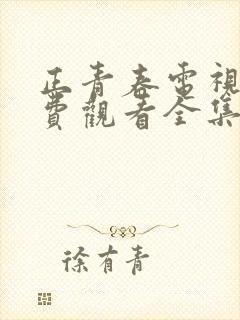 正青春電視
費觀看全集
徐有青